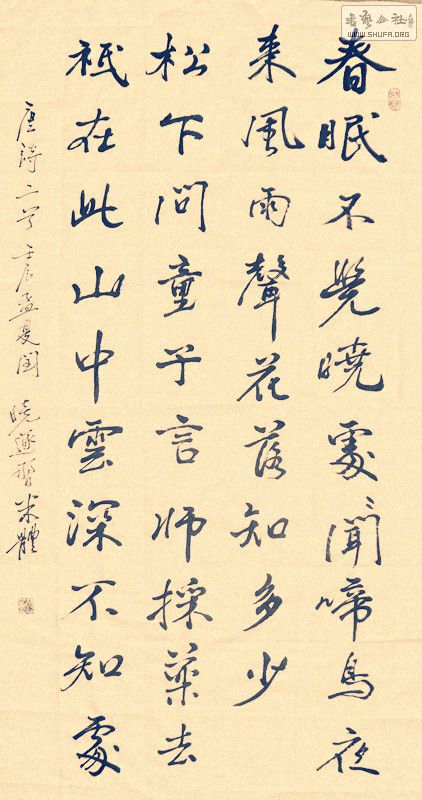 春眠不覺曉處〻聞啼鳥夜
来風雨聲花落知多少
松下問童子言師採藥去
祇在此山中雲深不知處
唐詩二首壬辰孟夏閏
曉習米體
書藝公社
WWW.SHUFA.ORG